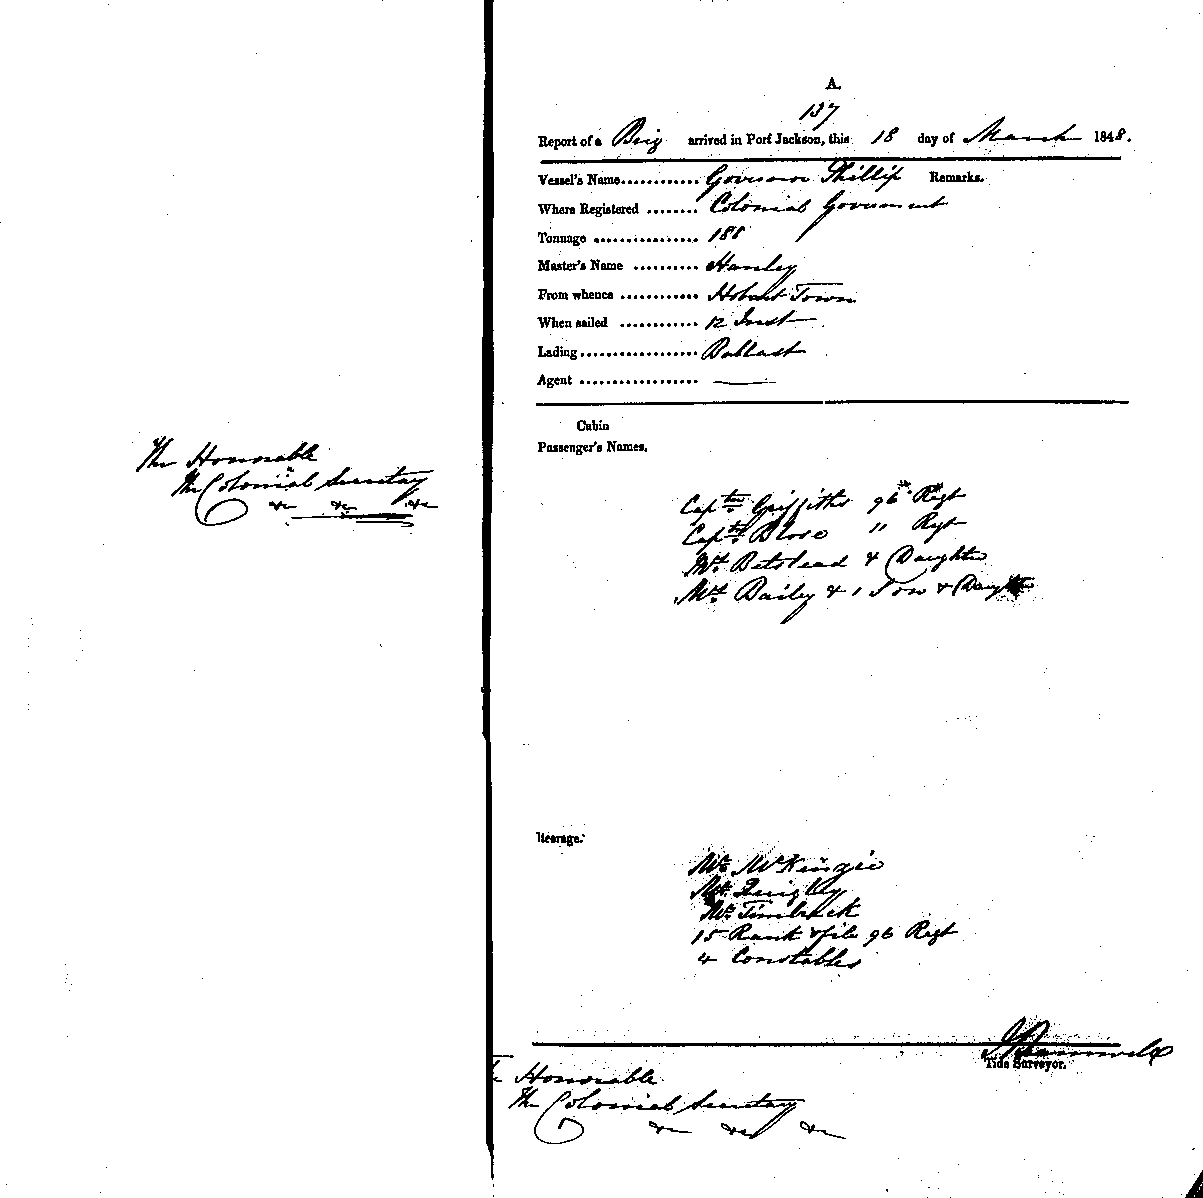 The Honorable
The Colonial Secretary
&c &c &c
A.
137
Report of a Brig arrived in Port Jackson, this 18 day of March 1848.
Vessel's Name............ Governor Phillip Remarks.
Where Registered ........ Colonial Government
Tonnage ................ 188
Master's Name .......... Hanley
From whence ............ Hobart Town
When sailed ............ 12 Inst
Lading.................. Ballast
Agent .................. —
Cabin
Passenger's Names.
Capten Griffiths 96th Regt
Capten Bloro " Regt
Mrs. & Daughter
Mrs. Bailey & 1 Son & Daughter
teerage.
Mr. McKenzie
Quigley
Mr.
15 Rank & file 96 Regt
4 Constables
Tide Surveyor.
The Honorable
The Colonial Secretary
&c &c &c